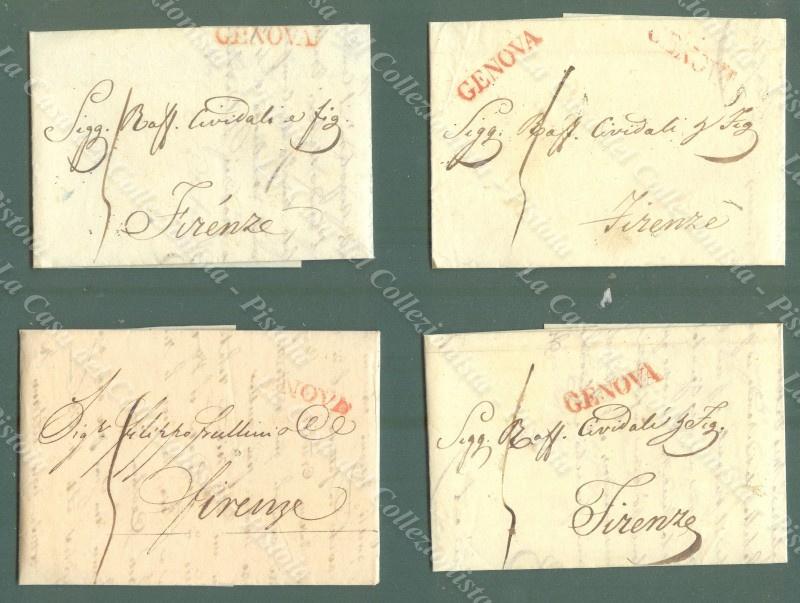 GENOVA
Sigg. Raff. Cividali e fig.
Firenze
GENOVA
GENOVA
Sigg. Raff. Cividali & Fig
Firenze
NOVA
Sig.r
Firenze
GENOVA
Sigg. Raff. Cividali & Fig.
Firenze
La Casa del Collezionista - Pistoia